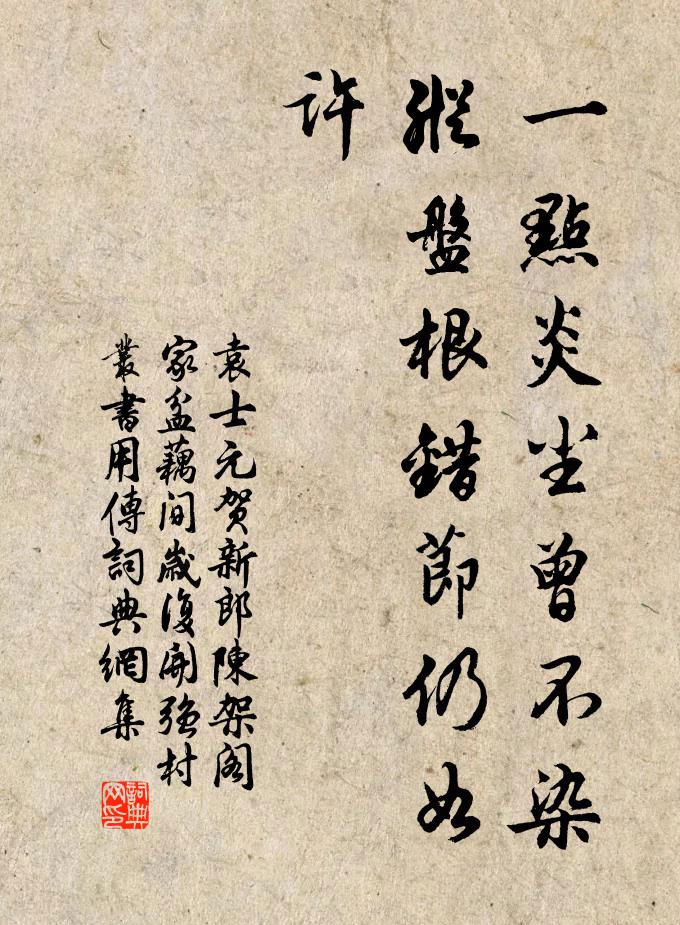 一點炎尘曾不染
縱盤根錯節仍如
許
袁士元賀新郎陳架阁
家盆藕间歲復開強村
叢書用傳詞典網集
詞典网印